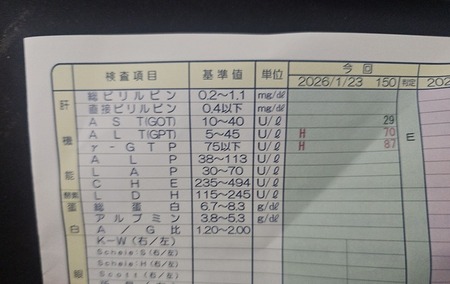 今回
検査項目 基準値 単位 2026/1/23 150 判定 202
総ビリルビン 0.2～1.1 mg/dl
肝 直接ビリルビン 0.4以下 mg/dl
A S T(GOT) 10～40 U/l 29
機 A L T(GPT) 5～45 U/l H 70 E
γ-G T P 75以下 U/l H 87
A L P 38～113 U/l
能 L A P 30～70 U/l
C H E 235～494 U/l
酵素 L D H 115～245 U/l
蛋 総蛋白 6.7～8.3 g/dl
アルブミン 3.8～5.3 g/dl
白 A / G 比 1.20～2.00
K-W(右/左)
Scheie:S(右/左)
Scheie:H(右/左)
眼 Scott(右/左)